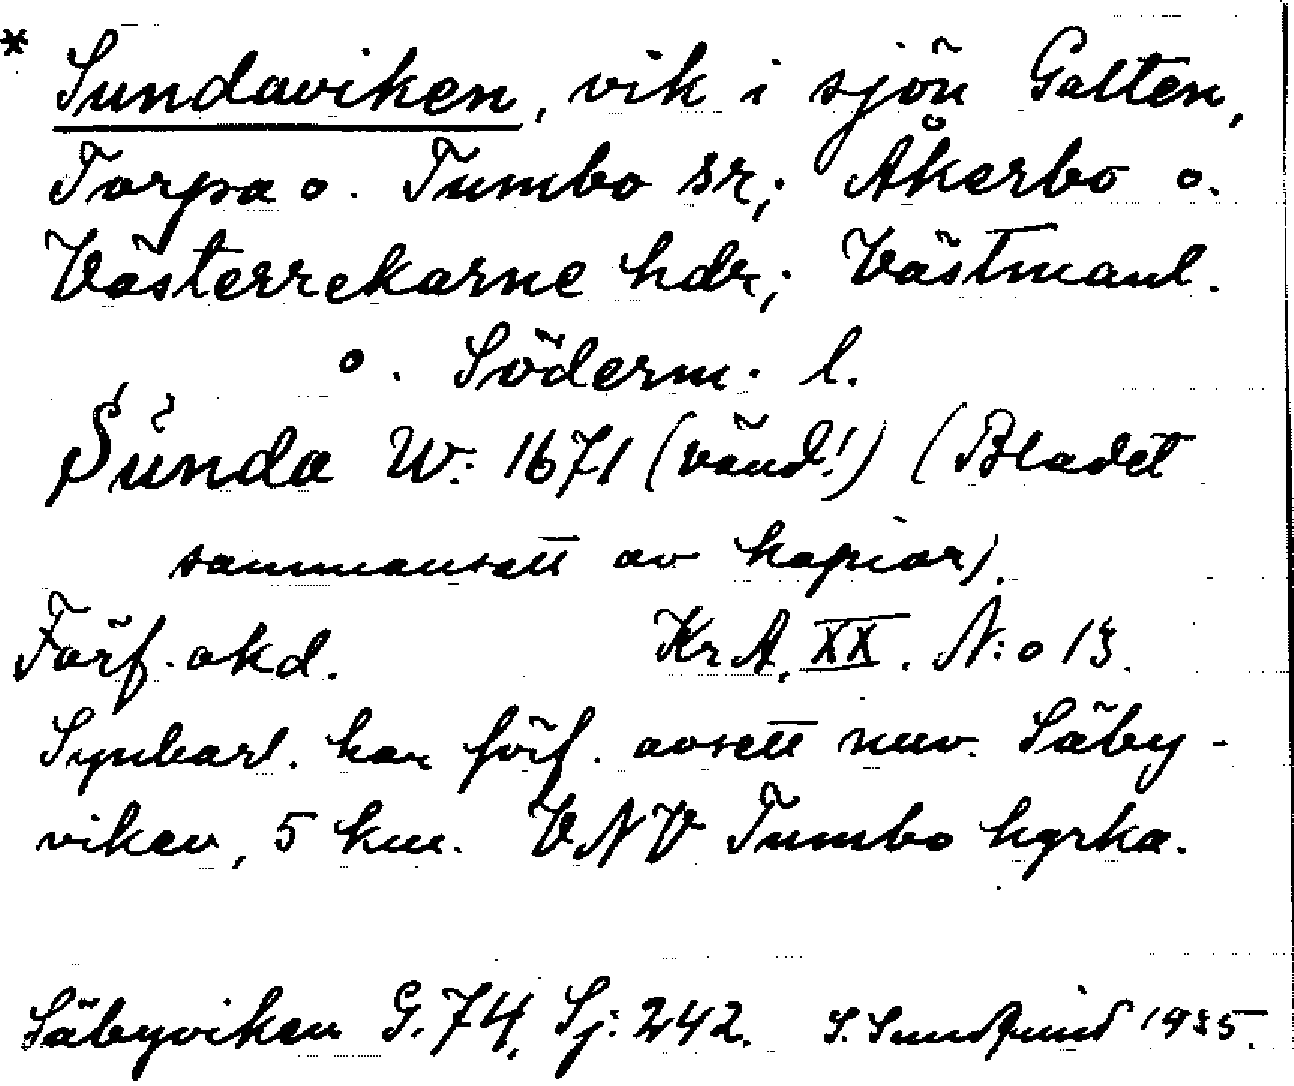 * Sundaviken, vik i sjön Galten,
Torpa o. Tumbo sr; Åkerbo o.
Västerrekarne hdr; Västmanl.
o. Söderm. l.
Sunda W: 1671 (vänd!) (Bladet
sammansatt av kopior).
Förf. okd. Kr A. XX. N:o 13.
Synbarl. har förf. avsett nuv. Säby-
viken, 5 km. VNV Tumbo kyrka.
Säbyviken G. 74, Sj: 242. S. 1935.